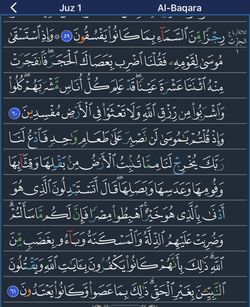 Juz 1
Al-Baqara
رِجْزًا مِّنَ ٱلسَّمَآءِ بِمَا كَانُوا۟ يَفْسُقُونَ ٥٩ ۞ وَإِذِ ٱسْتَسْقَىٰ
مُوسَىٰ لِقَوْمِهِۦ فَقُلْنَا ٱضْرِب بِّعَصَاكَ ٱلْحَجَرَ ۖ فَٱنفَجَرَتْ
مِنْهُ ٱثْنَتَا عَشْرَةَ عَيْنًا ۖ قَدْ عَلِمَ كُلُّ أُنَاسٍ مَّشْرَبَهُمْ ۖ كُلُوا۟
وَٱشْرَبُوا۟ مِن رِّزْقِ ٱللَّهِ وَلَا تَعْثَوْا۟ فِى ٱلْأَرْضِ مُفْسِدِينَ ٦٠
وَإِذْ قُلْتُمْ يَـٰمُوسَىٰ لَن نَّصْبِرَ عَلَىٰ طَعَامٍ وَٰحِدٍ فَٱدْعُ لَنَا
رَبَّكَ يُخْرِجْ لَنَا مِمَّا تُنۢبِتُ ٱلْأَرْضُ مِنۢ بَقْلِهَا وَقِثَّآئِهَا
وَفُومِهَا وَعَدَسِهَا وَبَصَلِهَا ۖ قَالَ أَتَسْتَبْدِلُونَ ٱلَّذِى هُوَ
أَدْنَىٰ بِٱلَّذِى هُوَ خَيْرٌ ۚ ٱهْبِطُوا۟ مِصْرًا فَإِنَّ لَكُم مَّا سَأَلْتُمْ ۗ
وَضُرِبَتْ عَلَيْهِمُ ٱلذِّلَّةُ وَٱلْمَسْكَنَةُ وَبَآءُو بِغَضَبٍ مِّنَ
ٱللَّهِ ۗ ذَٰلِكَ بِأَنَّهُمْ كَانُوا۟ يَكْفُرُونَ بِـَٔايَـٰتِ ٱللَّهِ وَيَقْتُلُونَ
ٱلنَّبِيِّـۧنَ بِغَيْرِ ٱلْحَقِّ ۗ ذَٰلِكَ بِمَا عَصَوا۟ وَّكَانُوا۟ يَعْتَدُونَ ٦١